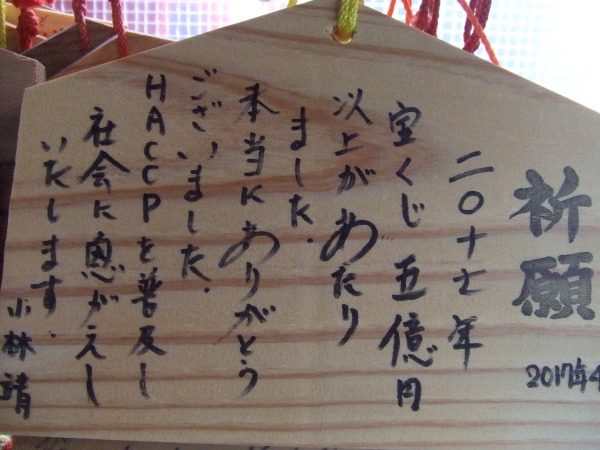 祈願
2017年4
二〇十七年
宝くじ 五億円
以上があたり
ました.
本当にありがとう
ございました.
HACCPを普及し
社会に恩がえし
いたします.
小林靖